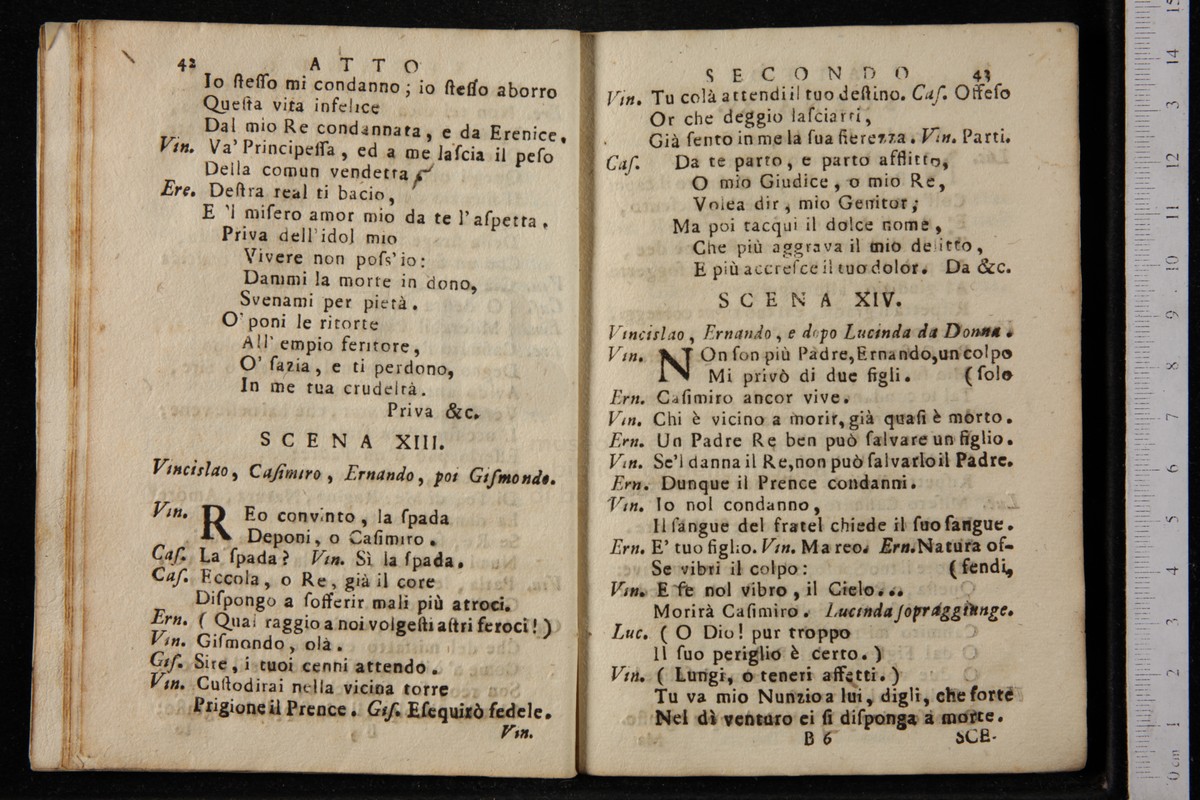 42 ATTO
Io ſteſſo mi condanno; io ſteſſo aborro
Queſta vita infelice
Dal mio Re condannata, e da Erenice.
Vin. Va' Principeſſa, ed a me laſcia il peſo
Della comun vendetta.
Ere. Deſtra real ti bacio,
E 'l miſero amor mio da te l'aſpetta.
Priva dell'idol mio
Vivere non poſs'io:
Dammi la morte in dono,
Svenami per pietà.
O' poni le ritorte
All' empio feritore,
O' ſazia, e ti perdono,
In me tua crudeltà.
Priva &c.
SCENA XIII.
Vincislao, Caſimiro, Ernando, poi Giſmondo.
Vin. REo convinto, la ſpada
Deponi, o Caſimiro.
Caſ. La ſpada? Vin. Sì la ſpada.
Caſ. Eccola, o Re, già il core
Diſpongo a ſofferir mali più atroci.
Ern. (Qual raggio a noi volgeſti aſtri feroci!)
Vin. Giſmondo, olà.
Giſ. Sire, i tuoi cenni attendo.
Vin. Cuſtodirai nella vicina torre
Prigione il Prence. Giſ. Eſequirò fedele.
Vin.
SECONDO 43
Vin. Tu colà attendi il tuo deſtino. Caſ. Offeſo
Or che deggio laſciarti,
Già ſento in me la ſua fierezza. Vin. Parti.
Caſ. Da te parto, e parto afflitto,
O mio Giudice, o mio Re,
Volea dir, mio Genitor;
Ma poi tacqui il dolce nome,
Che più aggrava il mio delitto,
E più accreſce il tuo dolor. Da &c.
SCENA XIV.
Vincislao, Ernando, e dopo Lucinda da Donna.
Vin. NOn ſon più Padre, Ernando, un colpo
Mi privò di due figli. (ſolo
Ern. Caſimiro ancor vive.
Vin. Chi è vicino a morir, già quaſi è morto.
Ern. Un Padre Re ben può ſalvare un figlio.
Vin. Se'l danna il Re, non può ſalvarlo il Padre.
Ern. Dunque il Prence condanni.
Vin. Io nol condanno,
Il ſangue del fratel chiede il ſuo ſangue.
Ern. E' tuo figlio. Vin. Ma reo. Ern. Natura of-
Se vibri il colpo: (fendi,
Vin. E ſe nol vibro, il Cielo...
Morirà Caſimiro. Lucinda ſopraggiunge.
Luc. (O Dio! pur troppo
Il ſuo periglio è certo.)
Vin. (Lungi, o teneri affetti.)
Tu va mio Nunzio a lui, digli, che forte
Nel dì venturo ei ſi diſponga a morte.
B 6 SCE-